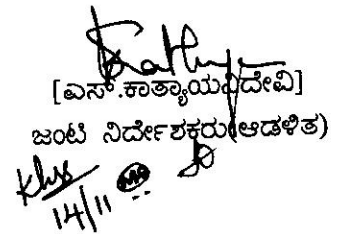 [ಎಸ್.ಕಾತ್ಯಾಯಿನಿದೇವಿ]
ಜಂಟಿ ನಿರ್ದೇಶಕರು(ಆಡಳಿತ)
14/11